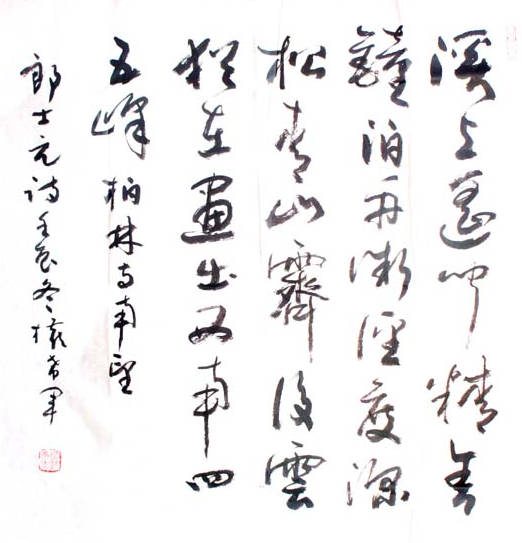 溪上遙聞精舍
鐘泊舟微徑度深
松青山霽後雲
猶在畫出西南四
五峰 柏林寺南望
郎士元詩壬辰冬